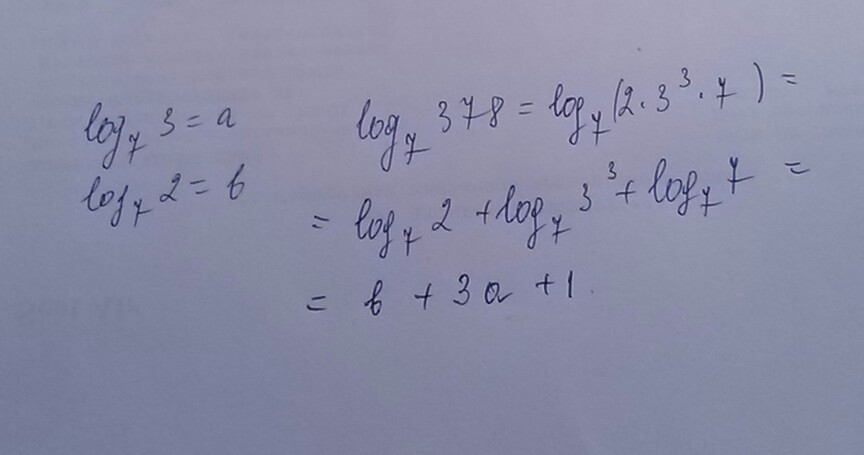 log₇ 3 = a
log₇ 2 = b
log₇ 378 = log₇ (2 · 3³ · 7) =
= log₇ 2 + log₇ 3³ + log₇ 7 =
= b + 3a + 1.